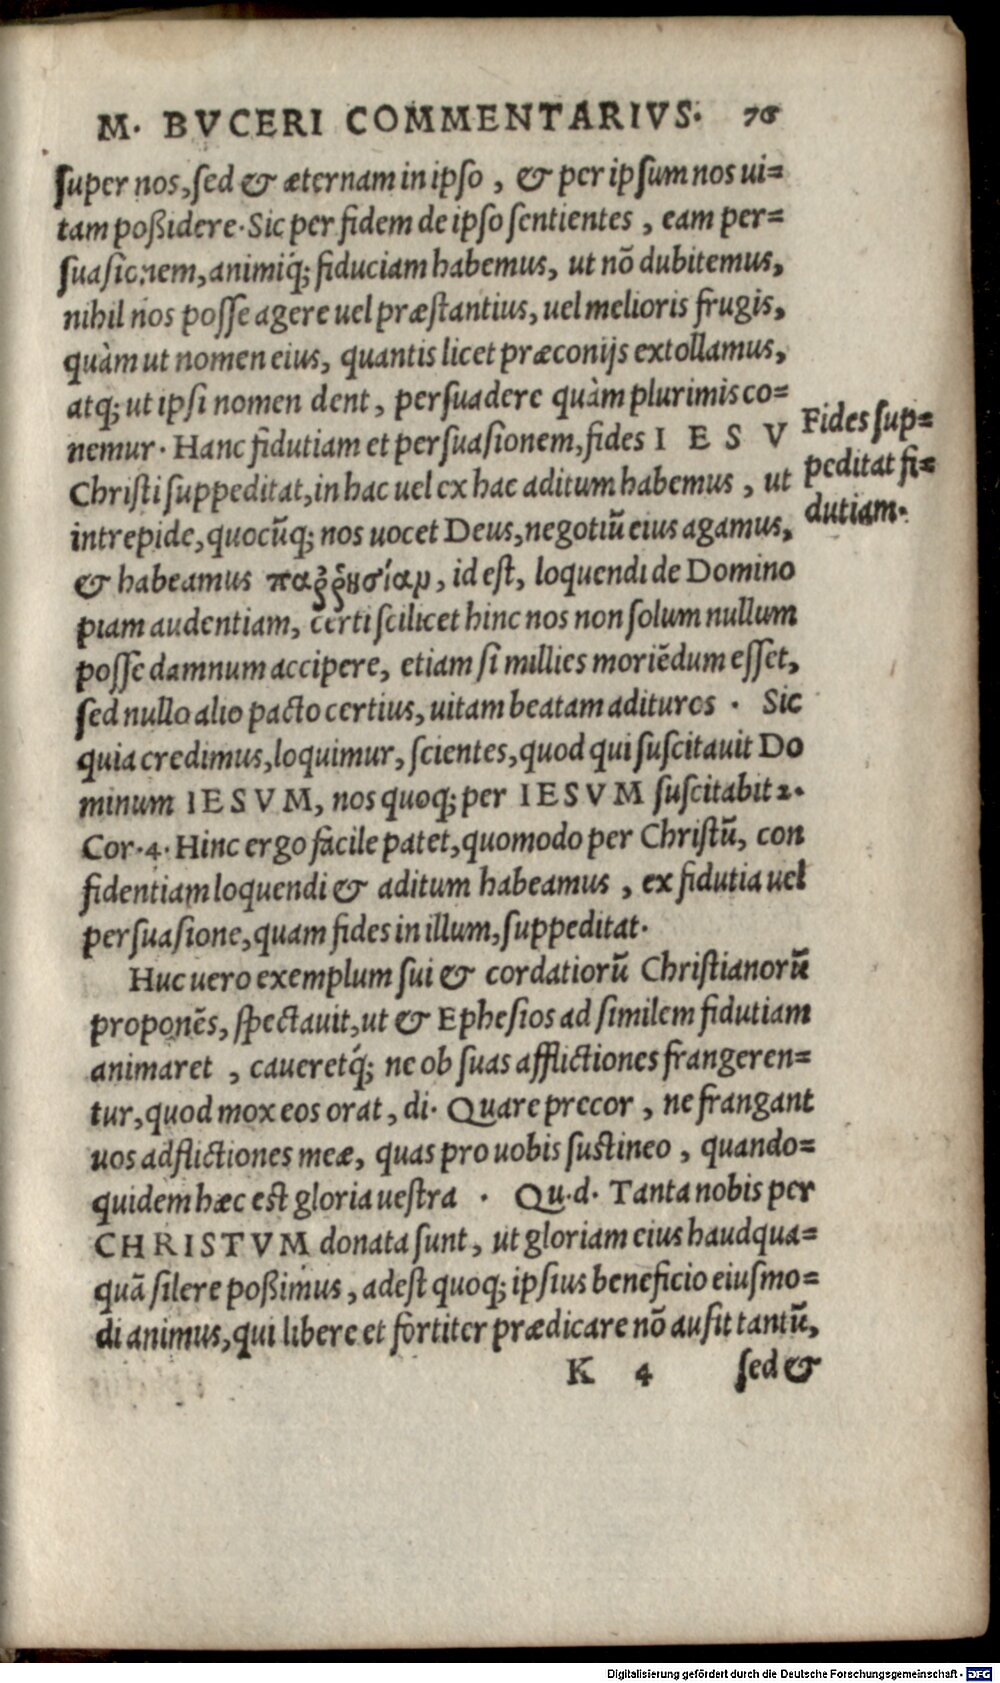 M. BVCERI COMMENTARIVS. 76
super nos, sed & æternam in ipso, & per ipsum nos ui=
tam poßidere. Sic per fidem de ipso sentientes, eam per=
suasionem, animiq́; fiduciam habemus, ut nõ dubitemus,
nihil nos posse agere uel præstantius, uel melioris frugis,
quàm ut nomen eius, quantis licet præconijs extollamus,
atq; ut ipsi nomen dent, persuadere quàm plurimis co=
nemur. Hanc fidutiam et persuasionem, fides IESV
Christi suppeditat, in hac uel ex hac aditum habemus, ut
intrepide, quocũq; nos uocet Deus, negotiũ eius agamus,
& habeamus παῤῥησίαν, id est, loquendi de Domino
piam audentiam, certi scilicet hinc nos non solum nullum
posse damnum accipere, etiam si millies moriẽdum esset,
sed nullo alio pacto certius, uitam beatam adituros. Sic
quia credimus, loquimur, scientes, quod qui suscitauit Do
minum IESVM, nos quoq; per IESVM suscitabit 2.
Cor. 4. Hinc ergo facile patet, quomodo per Christũ, con
fidentiam loquendi & aditum habeamus, ex fidutia uel
persuasione, quam fides in illum, suppeditat.
Huc uero exemplum sui & cordatiorũ Christianorũ
proponẽs, spectauit, ut & Ephesios ad similem fidutiam
animaret, caueretq́; ne ob suas afflictiones frangeren=
tur, quod mox eos orat, di. Quare precor, ne frangant
uos adflictiones meæ, quas pro uobis sustineo, quando=
quidem hæc est gloria uestra. Qu. d. Tanta nobis per
CHRISTVM donata sunt, ut gloriam eius haudqua=
quã silere poßimus, adest quoq; ipsius beneficio eiusmo=
di animus, qui libere et fortiter prædicare nõ ausit tantũ,
K 4 sed &
Fides sup=
peditat fi=
dutiam.
Digitalisierung gefördert durch die Deutsche Forschungsgemeinschaft - DFG